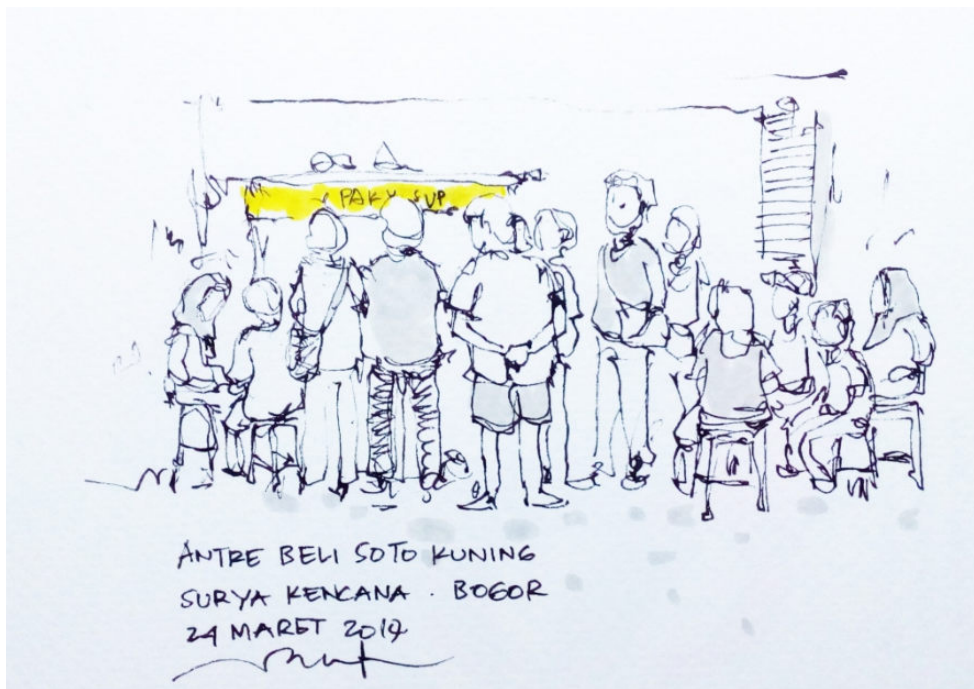 PAK Y SUP
ANTRE BELI SOTO KUNING
SURYA KENCANA . BOGOR
24 MARET